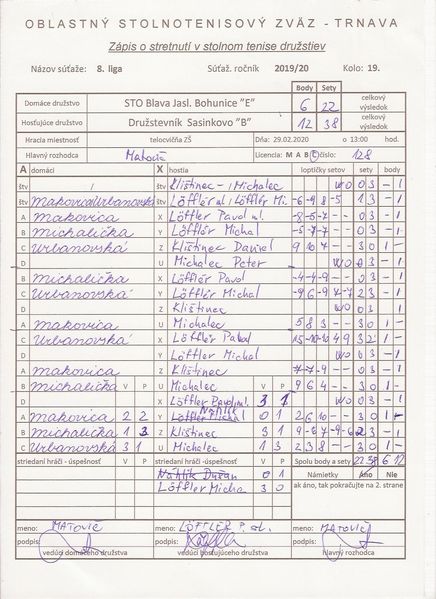 OBLASTNÝ STOLNOTENISOVÝ ZVÄZ - TRNAVA
Zápis o stretnutí v stolnom tenise družstiev
Názov súťaže: 8. liga Súťaž. ročník 2019/20 Kolo: 19.
Body Sety
Domáce družstvo STO Blava Jasl. Bohunice "E" 6 22 celkový výsledok
Hosťujúce družstvo Družstevník Sasinkovo "B" 12 38 celkový výsledok
Hracia miestnosť telocvičňa ZŠ Dňa: 29.02.2020 o 13:00 hod.
Hlavný rozhodca Matovič Licencia: M A B C číslo: 128
A domáci X hostia loptičky setov sety body
štv / štv Klištinec - Michalec WO 03 - 1
štv Makovica Urbanovská štv Löffler ml. Löffler Mi. -6 -9 8 -5 13 - 1
A Makovica X Löffler Pavol ml. -8 -5 -7 - - 03 - 1
B Michalička Y Löffler Michal -5 -7 -7 - - 03 - 1
C Urbanovská Z Klištinec Daniel 9 10 7 - - 30 1 -
D U Michalec Peter WO 03 - 1
B Michalička X Löffler Pavol -4 -4 -9 - - 03 - 1
C Urbanovská Y Löffler Michal -9 6 -9 4 -7 23 - 1
D Z Klištinec WO 03 - 1
A Makovica U Michalec 5 8 3 - - 30 1 -
C Urbanovská X Löffler Pavol
D Y Löffler Michal WO 03 - 1
A Makovica Z Klištinec
B Michalička V P U Michalec V P 9 6 4 - - 30 1 -
D X Löffler Pavol ml. 3 1 WO 03 - 1
A Makovica 2 2 Y Löffler Michal Náhlik 0 1 2 6 10 - - 30 1 -
B Michalička 1 3 Z Klištinec 3 1 9 -7 9 -6 -6 23 - 1
C Urbanovská 3 1 U Michalec 1 3 2 3 8 - - 30 1 -
striedaní hráči - úspešnosť V P striedaní hráči - úspešnosť V P Spolu body a sety 22 38 6 12
Náhlik Dušan 0 1 Námietky Áno Nie
Löffler Micha 3 0 ak áno, tak pokračujte na 2. strane
meno: MATOVIČ meno: LÖFFLER P. ml. meno: MATOVIČ
podpis: podpis: podpis:
vedúci domáceho družstva vedúci hosťujúceho družstva hlavný rozhodca